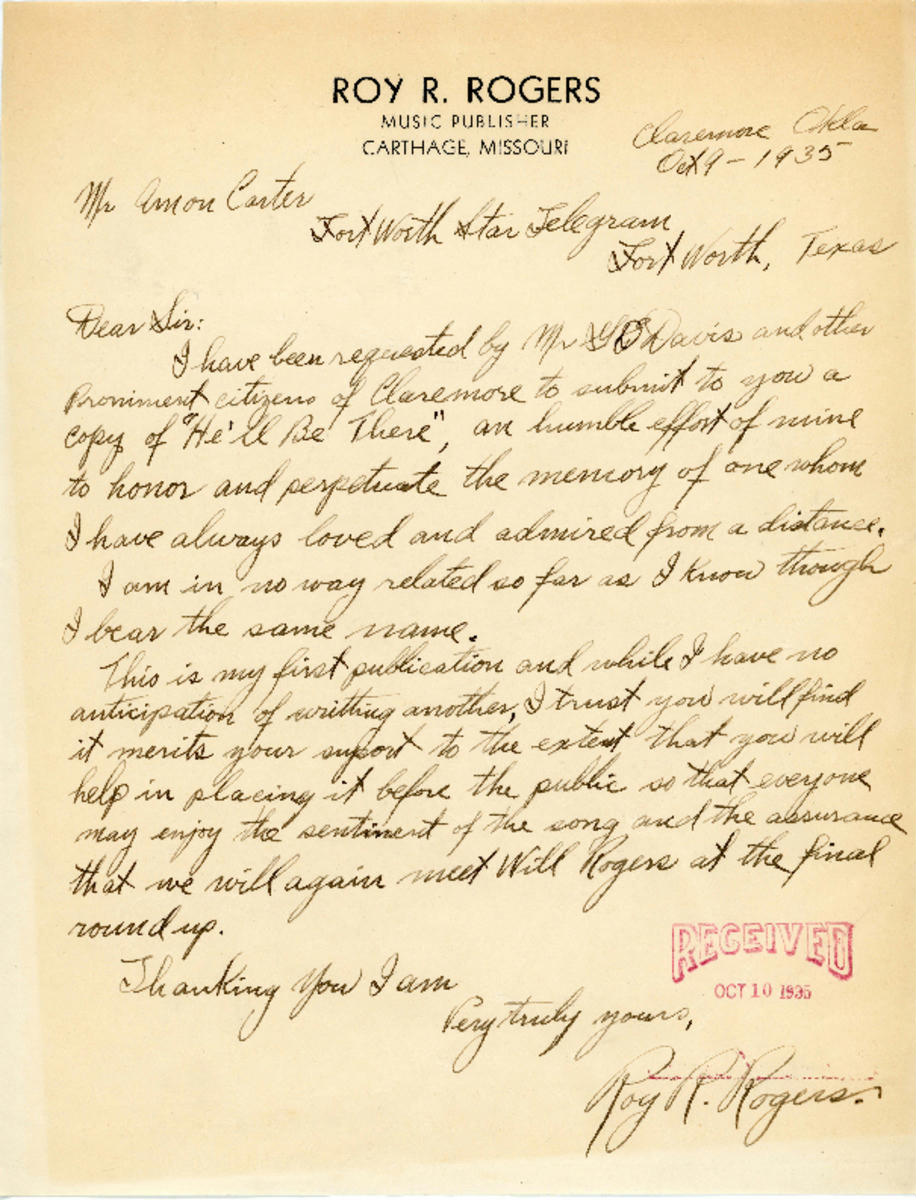 ROY R. ROGERS
MUSIC PUBLISHER
CARTHAGE, MISSOURI
Claremore Okla
Oct 9 - 1935
Mr Amon Carter
Fort Worth Star Telegram
Fort Worth, Texas
Dear Sir:
I have been requested by Mr Davis and other
Prominent citizens of Claremore to submit to you a
copy of "He'll Be There", an humble effort of mine
to honor and perpetuate the memory of one whom
I have always loved and admired from a distance.
I am in no way related so far as I know though
I bear the same name.
This is my first publication and while I have no
anticipation of writting another, I trust you will find
it merits your suport to the extent that you will
help in placing it before the public so that everyone
may enjoy the sentiment of the song and the assurance
that we will again meet Will Rogers at the final
round up.
Thanking You I am
Very truly yours,
Roy R. Rogers.
RECEIVED
OCT 10 1935